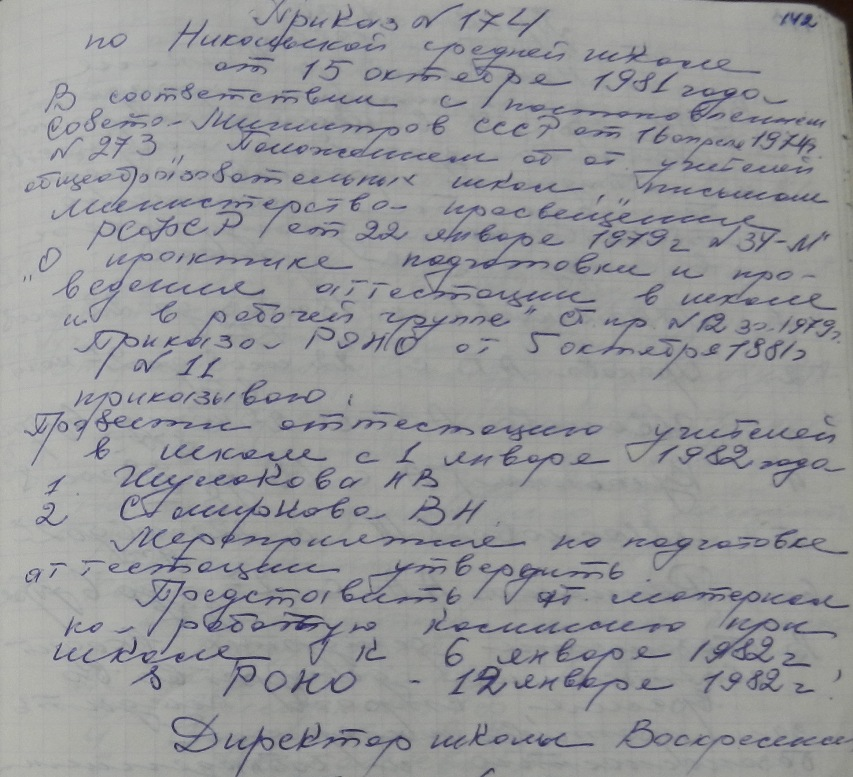 142
Приказ N 174
по Никольской средней школе
от 15 октября 1981 года
В соответствии с постановлением
Совета Министров СССР от 16 апреля 1974г.
N 273, Положением об ат. учителей
общеобразовательных школ, письмом
Министерства просвещения
РСФСР от 22 января 1979 г N 31-М
"О практике подготовки и про-
ведения аттестации в школе
и в рабочей группе" Сб пр N 12 за 1979г.
Приказа РОНО от 5 октября 1981г
N 11
приказываю:
Провести аттестацию учителей
в школе с 1 января 1982 года
1. НВ
2 Смирнова ВН.
Мероприятия по подготовке
аттестации утвердить
Представить ат. материал
на работую комиссию при
школе к 6 января 1982 г
в РОНО - 12 января 1982 г
Директор школы